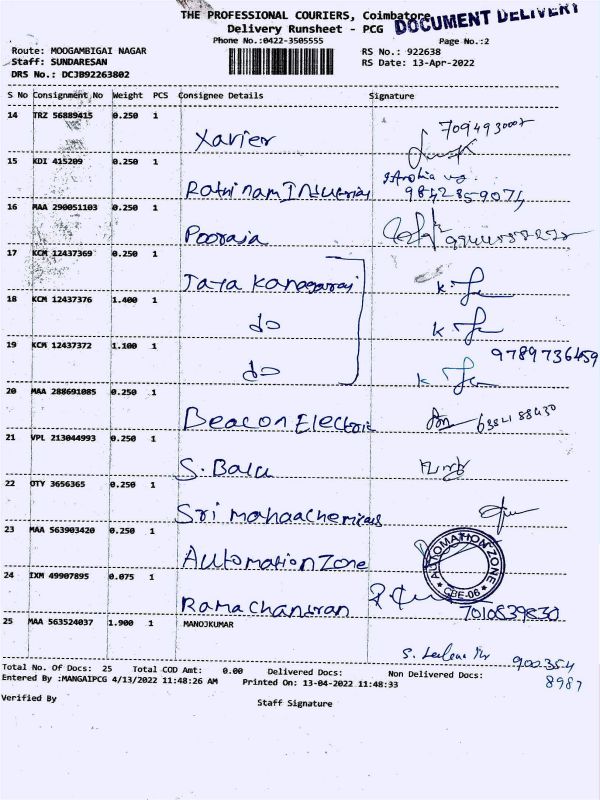 THE PROFESSIONAL COURIERS, Coimbatore
DOCUMENT DELIVERY
Delivery Runsheet - PCG
Phone No.:0422-3505555
Page No.:2
Route: MOOGAMBIGAI NAGAR
RS No.: 922638
Staff: SUNDARESAN
RS Date: 13-Apr-2022
DRS No.: DCJB92263802
S No Consignment No Weight PCS Consignee Details Signature
14 TRZ 56889415 0.250 1
Xavier 7094930007
15 KDI 415209 0.250 1
Rathinam Industries 9842859074
16 MAA 290051103 0.250 1
Pooraja
17 KCM 12437369 0.250 1
Jaya Kanagaraj
18 KCM 12437376 1.400 1
do
19 KCM 12437372 1.100 1
do 9789736459
20 MAA 288691085 0.250 1
Beacon Electric
21 VPL 213044993 0.250 1
S. Balu
22 OTY 3656365 0.250 1
Sri mahaachemicals
23 MAA 563903420 0.250 1
Automation Zone
AUTOMATION ZONE
CBE-06
24 IXM 49907895 0.075 1
Ramachandran 7010839830
25 MAA 563524037 1.900 1 MANOJKUMAR
900354
8987
Total No. Of Docs: 25 Total COD Amt: 0.00 Delivered Docs: Non Delivered Docs:
Entered By :MANGAIPCG 4/13/2022 11:48:26 AM Printed On: 13-04-2022 11:48:33
Verified By
Staff Signature